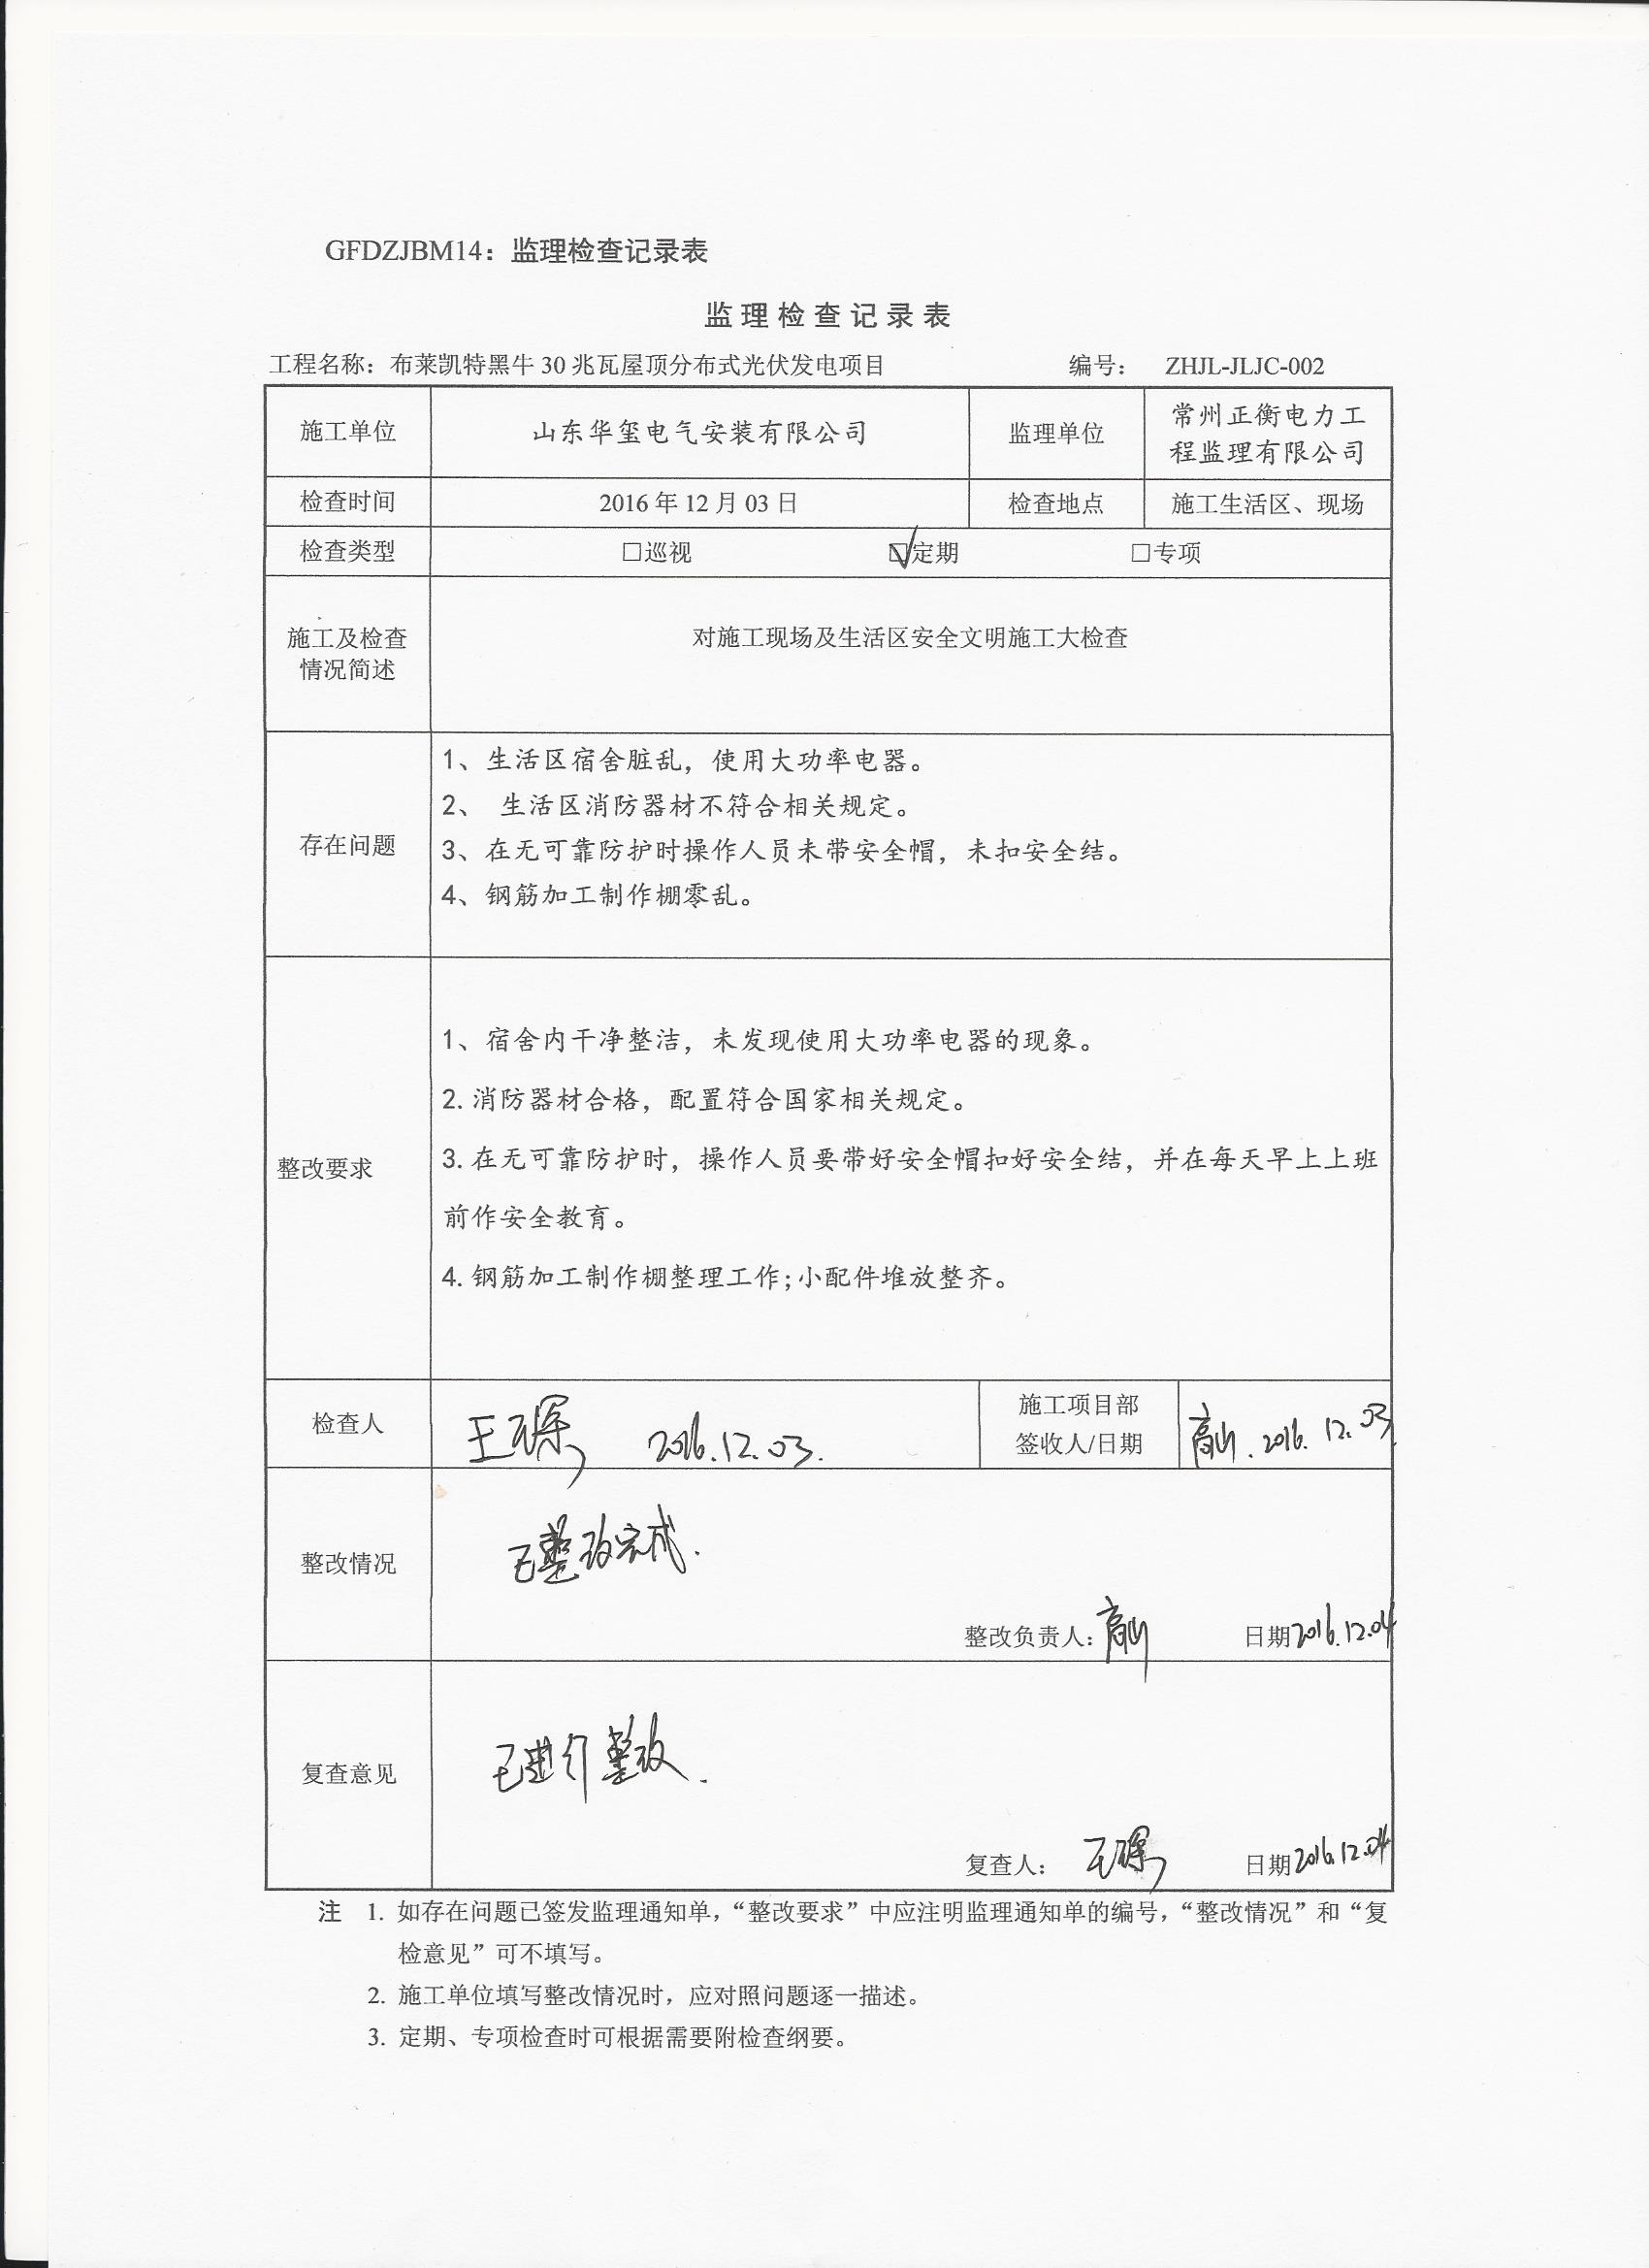 GFDZJBM14：监理检查记录表
监理检查记录表
工程名称：布莱凯特黑牛 30 兆瓦屋顶分布式光伏发电项目 编号： ZHJL-JLJC-002
施工单位 山东华玺电气安装有限公司 监理单位 常州正衡电力工
程监理有限公司
检查时间 2016 年 12 月 03 日 检查地点 施工生活区、现场
检查类型 □巡视 ☑定期 □专项
施工及检查
情况简述
对施工现场及生活区安全文明施工大检查
存在问题
1、生活区宿舍脏乱，使用大功率电器。
2、 生活区消防器材不符合相关规定。
3、在无可靠防护时操作人员未带安全帽，未扣安全结。
4、钢筋加工制作棚零乱。
整改要求
1、宿舍内干净整洁，未发现使用大功率电器的现象。
2.消防器材合格，配置符合国家相关规定。
3.在无可靠防护时，操作人员要带好安全帽扣好安全结，并在每天早上上班
前作安全教育。
4.钢筋加工制作棚整理工作;小配件堆放整齐。
检查人 2016.12.03.
施工项目部
签收人/日期
高山.2016.12.03
整改情况
已整改完成.
整改负责人：高山 日期2016.12.04
复查意见
已进行整改.
复查人： 日期2016.12.04
注 1. 如存在问题已签发监理通知单，“整改要求”中应注明监理通知单的编号，“整改情况”和“复
检意见”可不填写。
2. 施工单位填写整改情况时，应对照问题逐一描述。
3. 定期、专项检查时可根据需要附检查纲要。